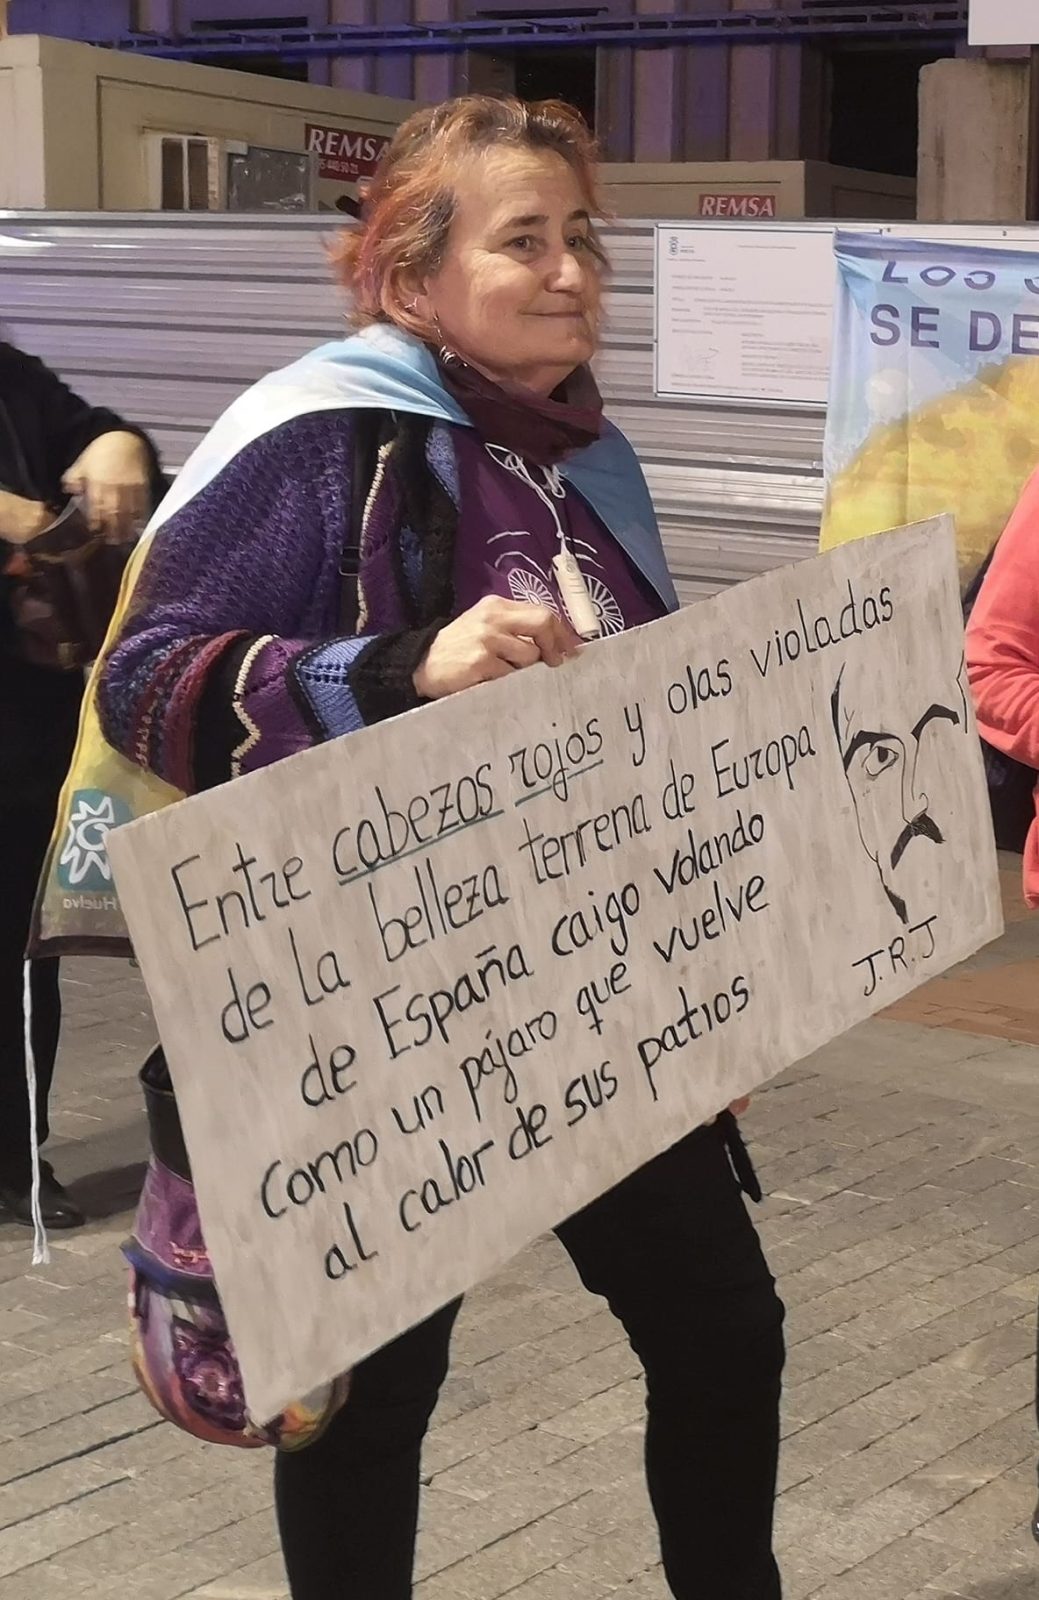 REMSA
REMSA
LOS
SE DE
Entre cabezos rojos y olas violadas
de la belleza terrena de Europa
de España caigo volando
como un pájaro que vuelve
al calor de sus patios
J.R.J
Huelva